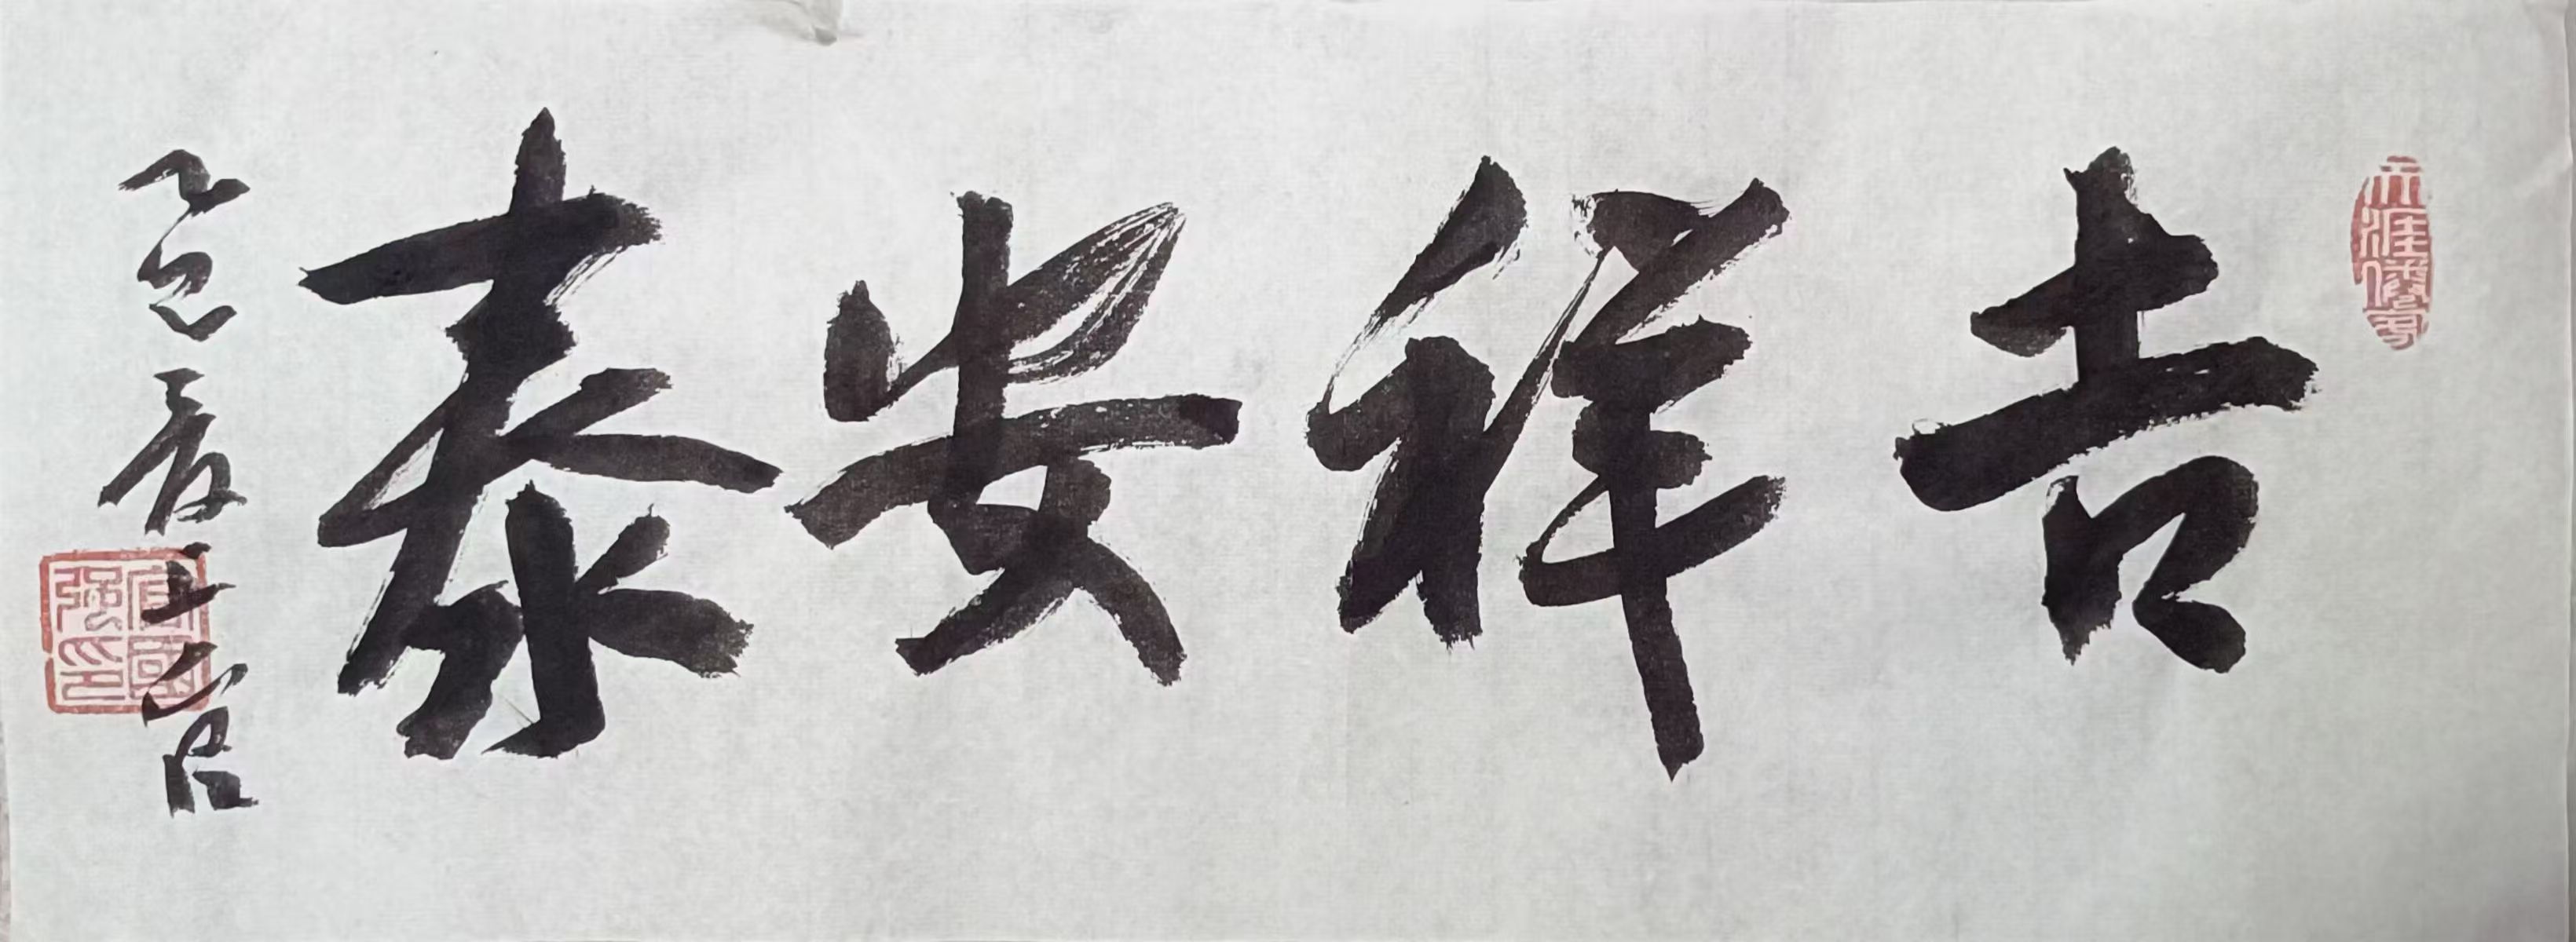 吉祥安泰
乙巳夏